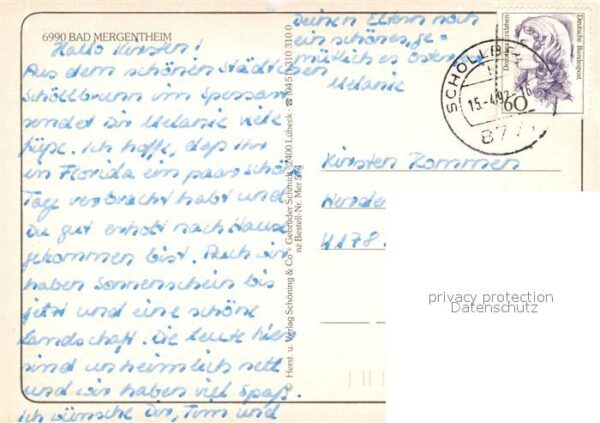 6990 BAD MERGENTHEIM
Hallo Kirsten!
Aus dem schönen Städtchen
Schöllbrunn im Spessart
sendet Dir Melanie viele
Ich hoffe, daß Ihr
in Florida ein paar schöne
Tage verbracht habt und
Du gut erholt nach Hause
gekommen bist. Auch wir
haben Sonnenschein bis
jetzt und eine schöne
Landschaft. Die Leute hier
sind unheimlich nett
und wir haben viel Spaß.
Ich wünsche Dir, Timm und
Deinen Eltern noch
ein schönes, ge-
mütliches Osterfest
Melanie
© Herst. u. Verlag Schöning & Co + Gebrüder Schmidt · 2400 Lübeck · ☎ (0451) 310 310 0
nz Bestell-Nr. Mer 574
Deutsche Bundespost
60
SCHÖLLBR
15.-4.92-16
877
Kirsten Rommen
4178
privacy protection
Datenschutz